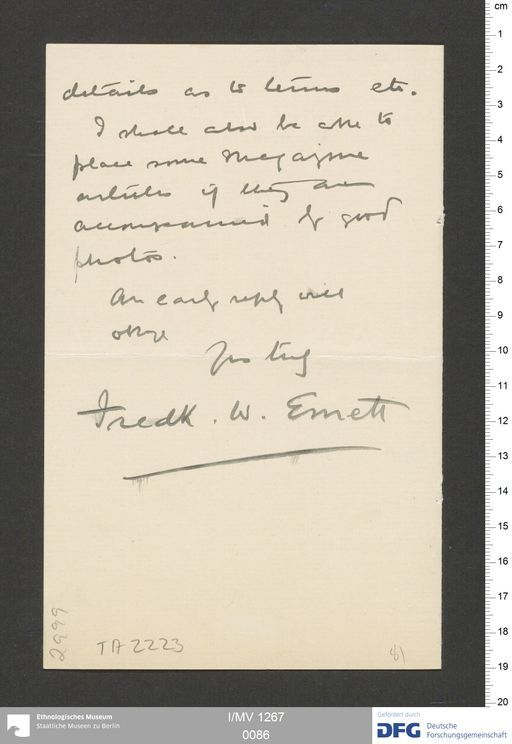 details as to terms etc.
I shall also be able to
place some Magazine
articles if they are
accompanied by good
photos.
An early reply will
oblige
Yrs truly
Fredk. W. Emett
2999
TA 2223
81
cm
1
2
3
4
5
6
7
8
9
10
11
12
13
14
15
16
17
18
19
20
Ethnologisches Museum
Staatliche Museen zu Berlin
I/MV 1267
0086
Gefördert durch
DFG Deutsche
Forschungsgemeinschaft